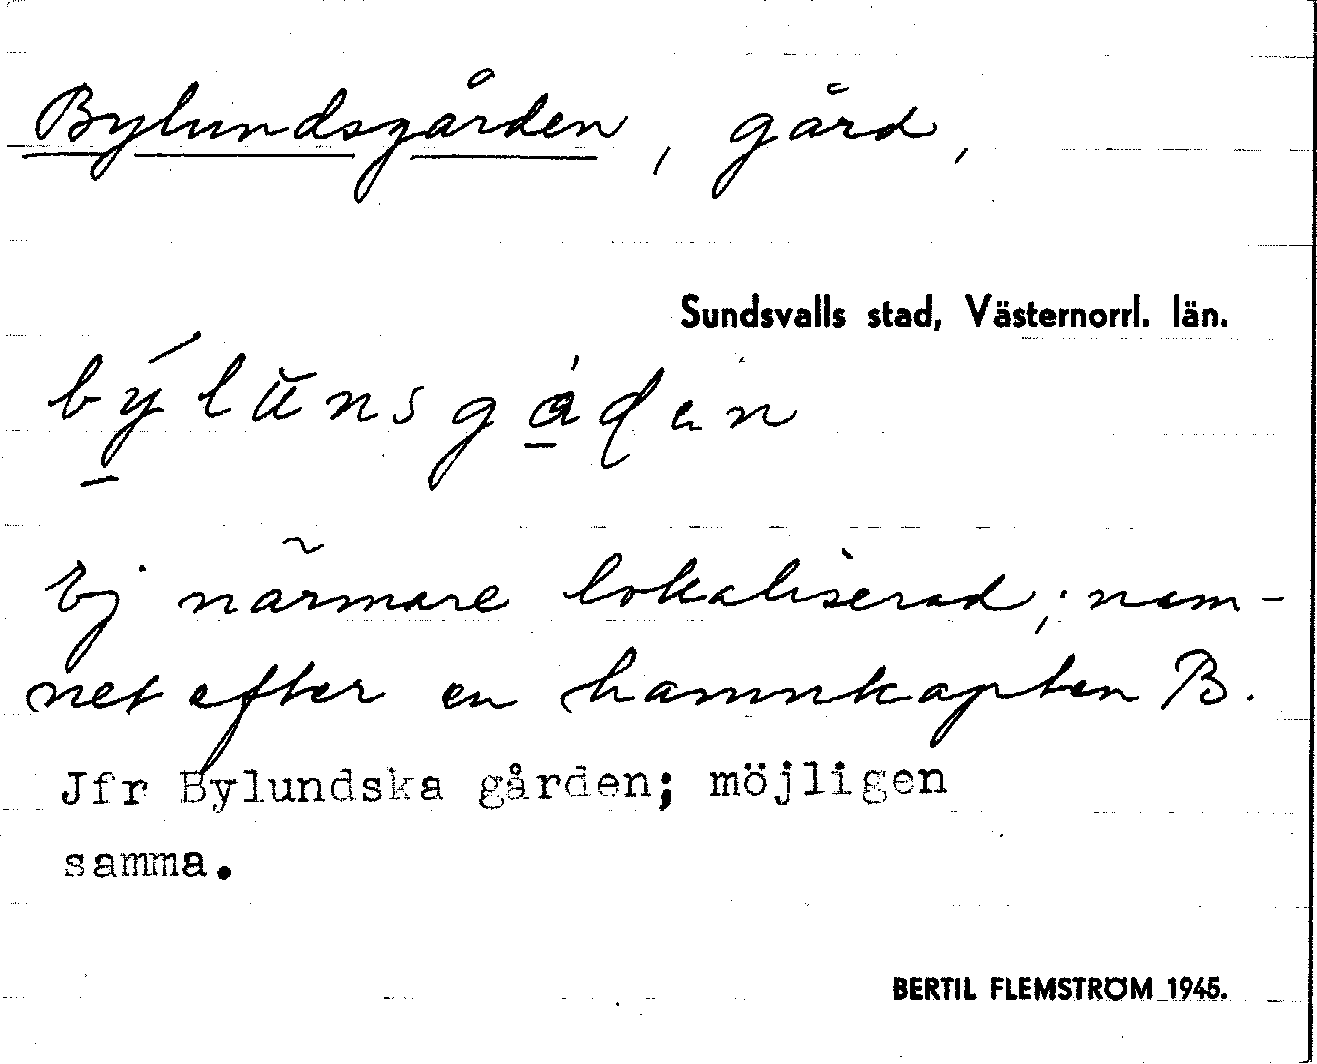 Bylundsgården, gård,
Sundsvalls stad, Västernorrl. län.
bý̱lŭnsgå̱ḍən
Ej närmare lokaliserad; nam-
net efter en hamnkapten B.
Jfr Bylundska gården; möjligen
samma.
BERTIL FLEMSTRÖM 1945.